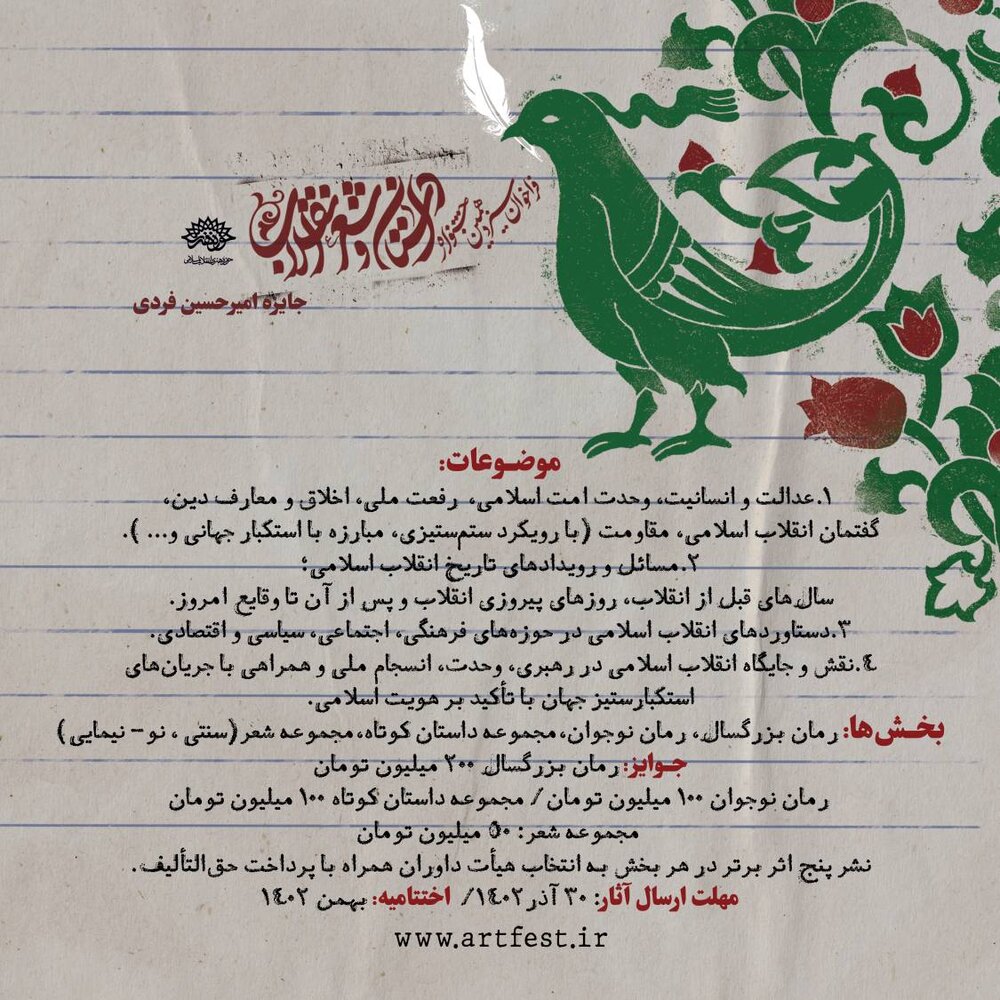 فراخوان سیزدهمین جشنواره
داستان و شعر انقلاب
حوزه هنری انقلاب اسلامی
جایزه امیرحسین فردی
موضوعات:
۱.عدالت و انسانیت، وحدت امت اسلامی، رفعت ملی، اخلاق و معارف دین،
گفتمان انقلاب اسلامی، مقاومت (با رویکرد ستم‌ستیزی، مبارزه با استکبار جهانی و... ).
۲.مسائل و رویدادهای تاریخ انقلاب اسلامی؛
سال‌های قبل از انقلاب، روزهای پیروزی انقلاب و پس از آن تا وقایع امروز.
۳.دستاوردهای انقلاب اسلامی در حوزه‌های فرهنگی، اجتماعی، سیاسی و اقتصادی.
٤.نقش و جایگاه انقلاب اسلامی در رهبری، وحدت، انسجام ملی و همراهی با جریان‌های
استکبارستیز جهان با تأکید بر هویت اسلامی.
بخش‌ها: رمان بزرگسال، رمان نوجوان، مجموعه داستان کوتاه، مجموعه شعر(سنتی ، نو - نیمایی)
جوایز: رمان بزرگسال ۲۰۰ میلیون تومان
رمان نوجوان ۱۰۰ میلیون تومان / مجموعه داستان کوتاه ۱۰۰ میلیون تومان
مجموعه شعر: ۵۰ میلیون تومان
نشر پنج اثر برتر در هر بخش به انتخاب هیأت داوران همراه با پرداخت حق‌التألیف.
مهلت ارسال آثار: ۳۰ آذر ۱٤۰۲/ اختتامیه: بهمن ۱٤۰۲
www.artfest.ir